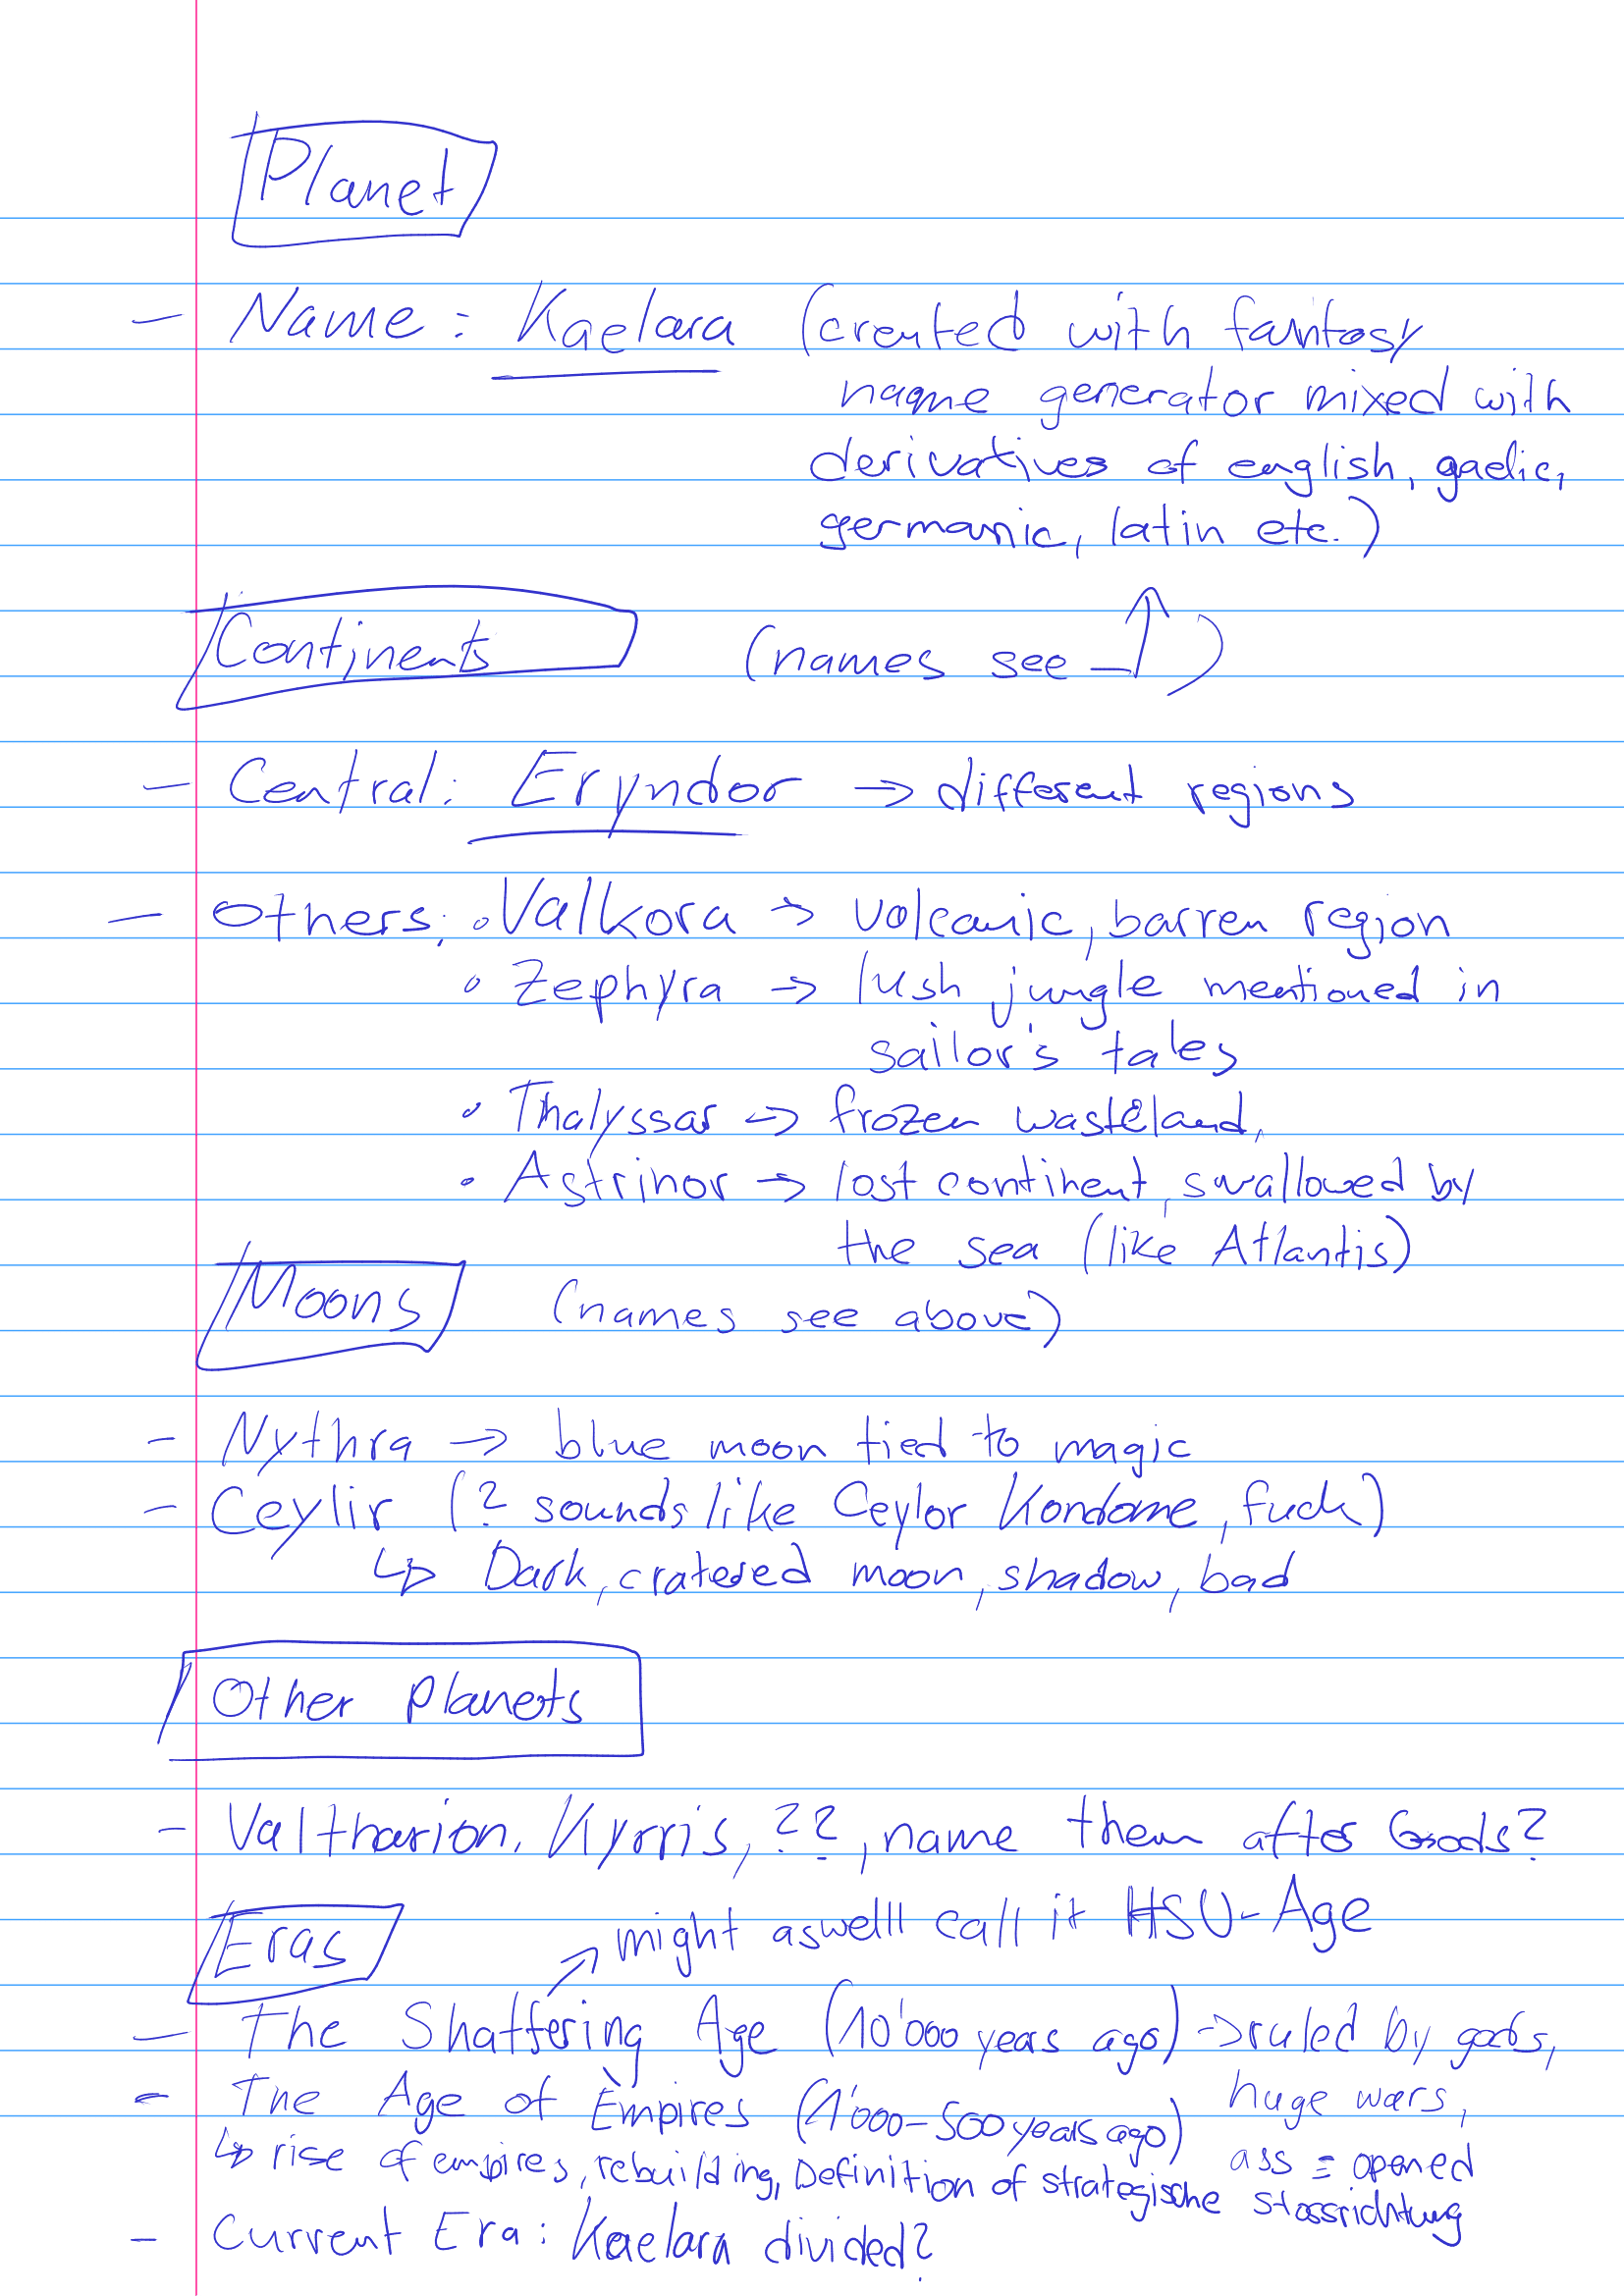 Planet
- Name: Kaelara (created with fantasy
name generator mixed with
derivatives of english, gaelic,
germanic, latin etc.)
Continents (names see ↑)
- Central: Eryndor → different regions
- Others: • Valkora → volcanic, barren region
• Zephyra → lush jungle mentioned in
sailor's tales
• Thalyssar → frozen wasteland,
• Astrinor → lost continent, swallowed by
the sea (like Atlantis)
Moons (names see above)
- Nythra → blue moon tied to magic
- Ceylir (? sounds like Ceylor Kondome, fuck)
↳ Dark, cratered moon, shadow, bad
Other Planets
- Valtharion, Kyrris, ??, name them after Gods?
Eras ↗ might aswelll call it HSU-Age
- The Shattering Age (10'000 years ago) → ruled by gods,
huge wars,
ass = opened
- The Age of Empires (1'000-500 years ago)
↳ rise of empires, rebuilding, Definition of strategische Stossrichtung
- Current Era: Kaelara divided?